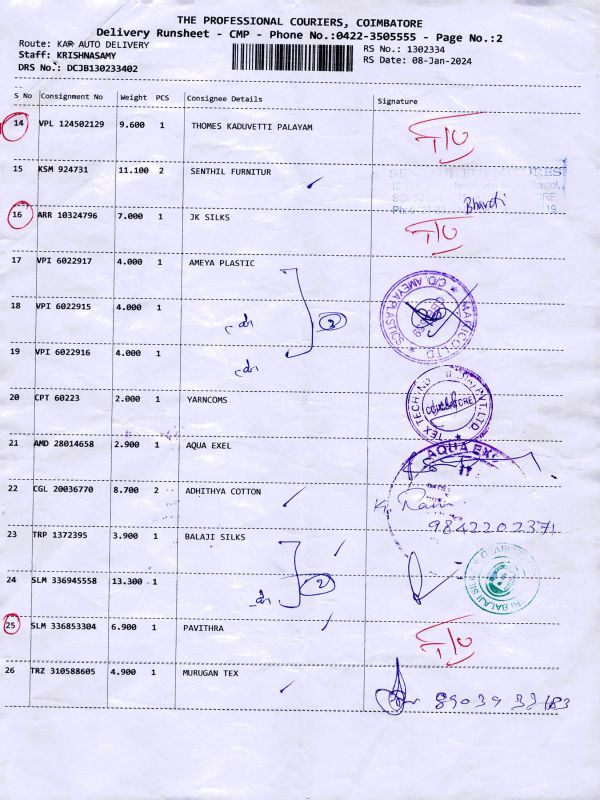 THE PROFESSIONAL COURIERS, COIMBATORE
Delivery Runsheet - CMP - Phone No.:0422-3505555 - Page No.:2
Route: KAR AUTO DELIVERY
RS No.: 1302334
Staff: KRISHNASAMY
RS Date: 08-Jan-2024
DRS No.: DCJB130233402
S No Consignment No Weight PCS Consignee Details Signature
14 VPL 124502129 9.600 1 THOMES KADUVETTI PALAYAM
15 KSM 924731 11.100 2 SENTHIL FURNITUR
16 ARR 10324796 7.000 1 JK SILKS
17 VPI 6022917 4.000 1 AMEYA PLASTIC
18 VPI 6022915 4.000 1 2
19 VPI 6022916 4.000 1
20 CPT 60223 2.000 1 YARNCOMS
21 AMD 28014658 2.900 1 AQUA EXEL
AQUA EXE
22 CGL 20036770 8.700 2 ADHITHYA COTTON
9842202371
23 TRP 1372395 3.900 1 BALAJI SILKS
24 SLM 336945558 13.300 1 2
25 SLM 336853304 6.900 1 PAVITHRA
26 TRZ 310588605 4.900 1 MURUGAN TEX